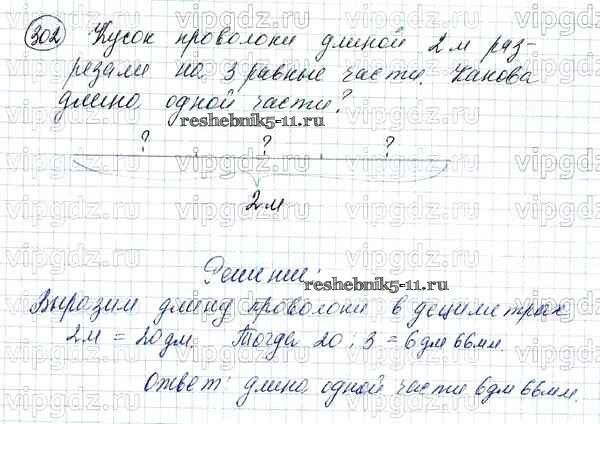 302 Кусок проволоки длиной 2 м раз-
резали на 3 равные части. Какова
длина одной части?
reshebnik5-11.ru
? ? ?
2 м
Решение:
reshebnik5-11.ru
Выразим длину проволоки в дециметрах
2 м = 20 дм. Тогда 20 : 3 = 6 дм 66 мм.
Ответ: длина одной части 6 дм 66 мм.